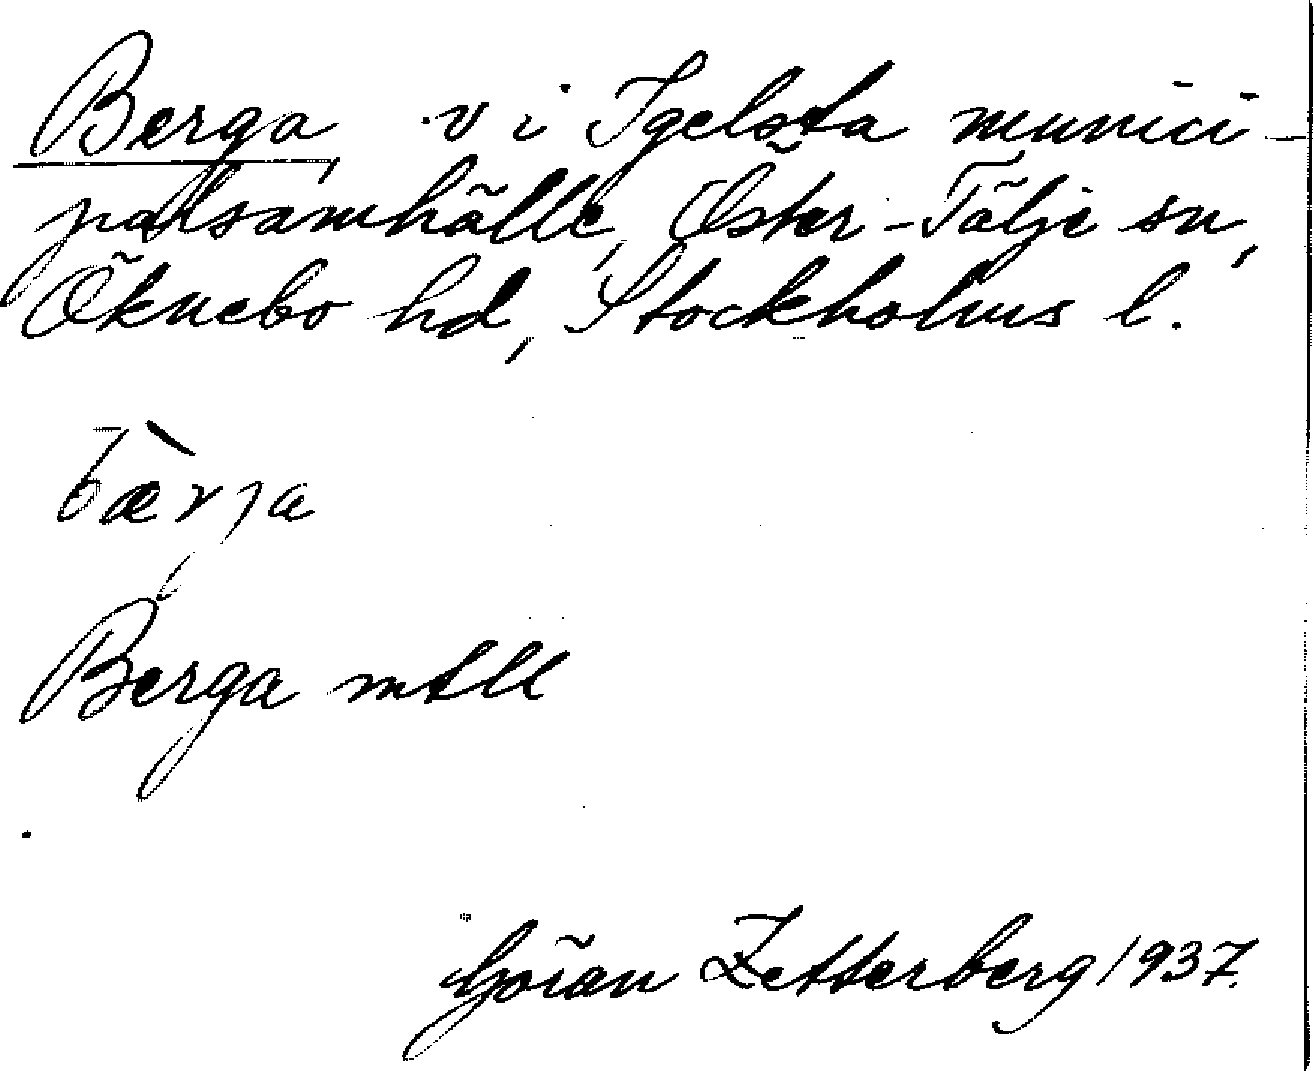 Berga, v i Igelsta munici-
palsamhälle, Öster-Tälje sn,
Öknebo hd, Stockholms l.
bær̀ja
Berga mtll
Göran Zetterberg 1937.